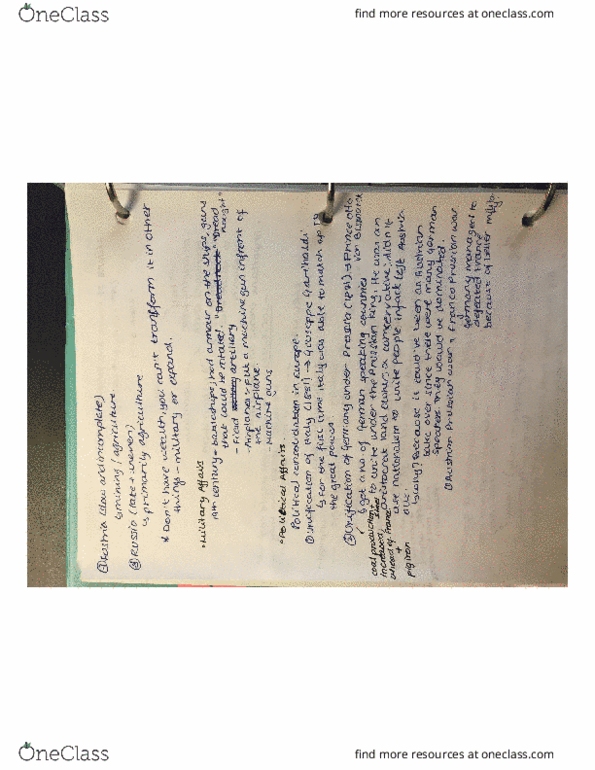 OneClass
find more resources at oneclass.com
③ Austria (slow and incomplete)
↳ mining / agriculture
④ Russia (late + uneven)
↳ primarily agriculture
* Don't have wealth, you can't transform it in other
things - military or expand.
• Military Affairs
19th century → battleships; had armour on the ships, guns
that could be rotate! "Dread
nought"
- Field artillery
- Airplanes; put a machine gun infront of
the airplane.
- Machine guns
• Political Affairs
Political consolidation in Europe.
① Unification of Italy (1861) → Giuseppe Garibaldi
↳ for the first time Italy was able to match up to
the great power.
② Unification of Germany under Prussia (1871) → Prince Otto
Von Bismarck
↳ got a no of German speaking countries
to unite under the Prussian King. He was an
aristocrat land owner, a conservative; didn't
use nationalism to unite people infact left Austria
out.
coal production
increased
ahead of France
+
pig iron
Why? Because it could've been an Austrian
take over since there were many German
speakers they would've dominated.
① Austrian Prussian war & Franco Prussian war
↳
Germany managed to
defeated France
because of better
find more resources at oneclass.com
OneClass